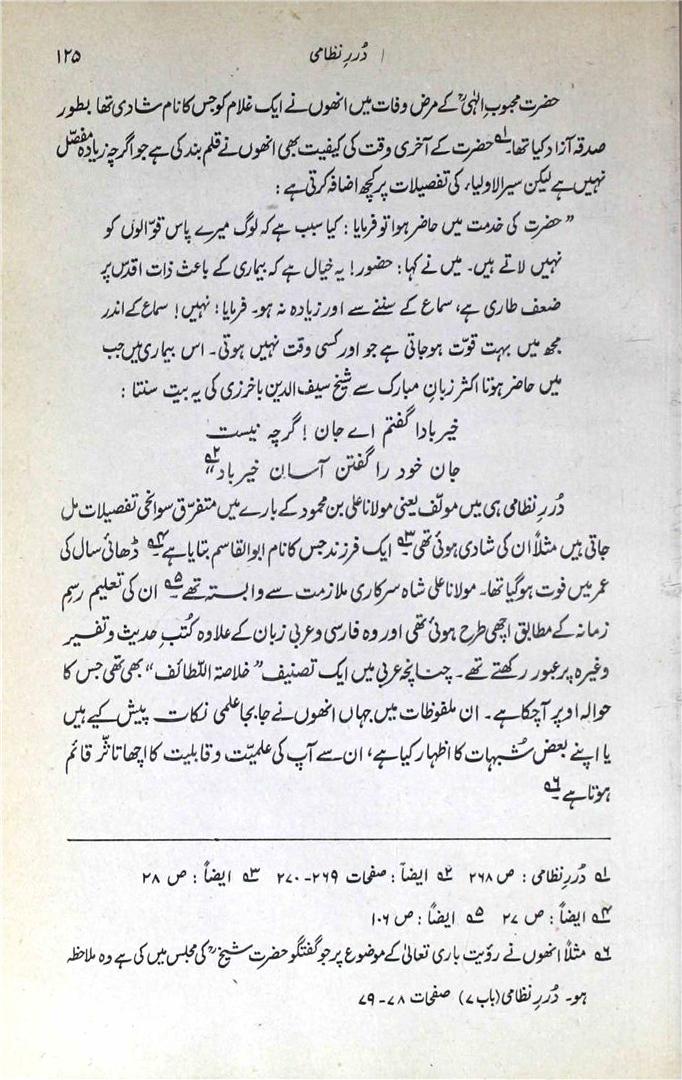 دُررِ نظامی ۱۲۵
حضرت محبوب الٰہیؒ کے مرض وفات میں انھوں نے ایک غلام کو جس کا نام شادی تھا بطور
صدقہ آزاد کیا تھا۔؎۱ حضرت کے آخری وقت کی کیفیت بھی انھوں نے قلم بند کی ہے جو اگرچہ زیادہ مفصّل
نہیں ہے لیکن سیرالاولیاء کی تفصیلات پر کچھ اضافہ کرتی ہے :
”حضرت کی خدمت میں حاضر ہوا تو فرمایا : کیا سبب ہے کہ لوگ میرے پاس قوّالوں کو
نہیں لاتے ہیں۔ میں نے کہا : حضور! یہ خیال ہے کہ بیماری کے باعث ذات اقدس پر
ضعف طاری ہے، سماع کے سننے سے اور زیادہ نہ ہو۔ فرمایا : نہیں! سماع کے اندر
مجھ میں بہت قوّت ہوجاتی ہے جو اور کسی وقت نہیں ہوتی۔ اس بیماری میں جب
میں حاضر ہوتا اکثر زبانِ مبارک سے شیخ سیف الدین باخرزی کی یہ بیت سنتا :
خیر بادا گفتم اے جان! گرچہ نیست
جان خود را گفتن آسان خیر باد“؎۲
دُررِ نظامی ہی میں مولّف یعنی مولانا علی بن محمود کے بارے میں متفرّق سوانحی تفصیلات مل
جاتی ہیں مثلاً ان کی شادی ہوئی تھی؎۳ ایک فرزند جس کا نام ابوالقاسم بتایا ہے؎۴ ڈھائی سال کی
عمر میں فوت ہوگیا تھا۔ مولانا علی شاہ سرکاری ملازمت سے وابستہ تھے؎۵ ان کی تعلیم رسمِ
زمانہ کے مطابق اچھی طرح ہوئی تھی اور وہ فارسی و عربی زبان کے علاوہ کُتبِ حدیث و تفسیر
وغیرہ پر عبور رکھتے تھے۔ چنانچہ عربی میں ایک تصنیف ”خلاصۃ اللّطائف“ بھی تھی جس کا
حوالہ اوپر آچکا ہے۔ ان ملفوظات میں جہاں انھوں نے جابجا علمی نکات پیش کیے ہیں
یا اپنے بعض شُبہات کا اظہار کیا ہے، ان سے آپ کی علمیّت و قابلیت کا اچھا تاثّر قائم
ہوتا ہے؎۶
؎۱ دُررِ نظامی : ص ۲۶۸ ؎۲ ایضاً : صفحات ۲۶۹-۲۷۰ ؎۳ ایضاً : ص ۲۸
؎۴ ایضاً : ص ۲۷ ؎۵ ایضاً : ص ۱۰۶
؎۶ مثلاً انھوں نے رؤیت باری تعالیٰ کے موضوع پر جو گفتگو حضرت شیخؒ کی مجلس میں کی ہے وہ ملاحظہ
ہو۔ دُررِ نظامی (باب ۷) صفحات ۷۸-۷۹